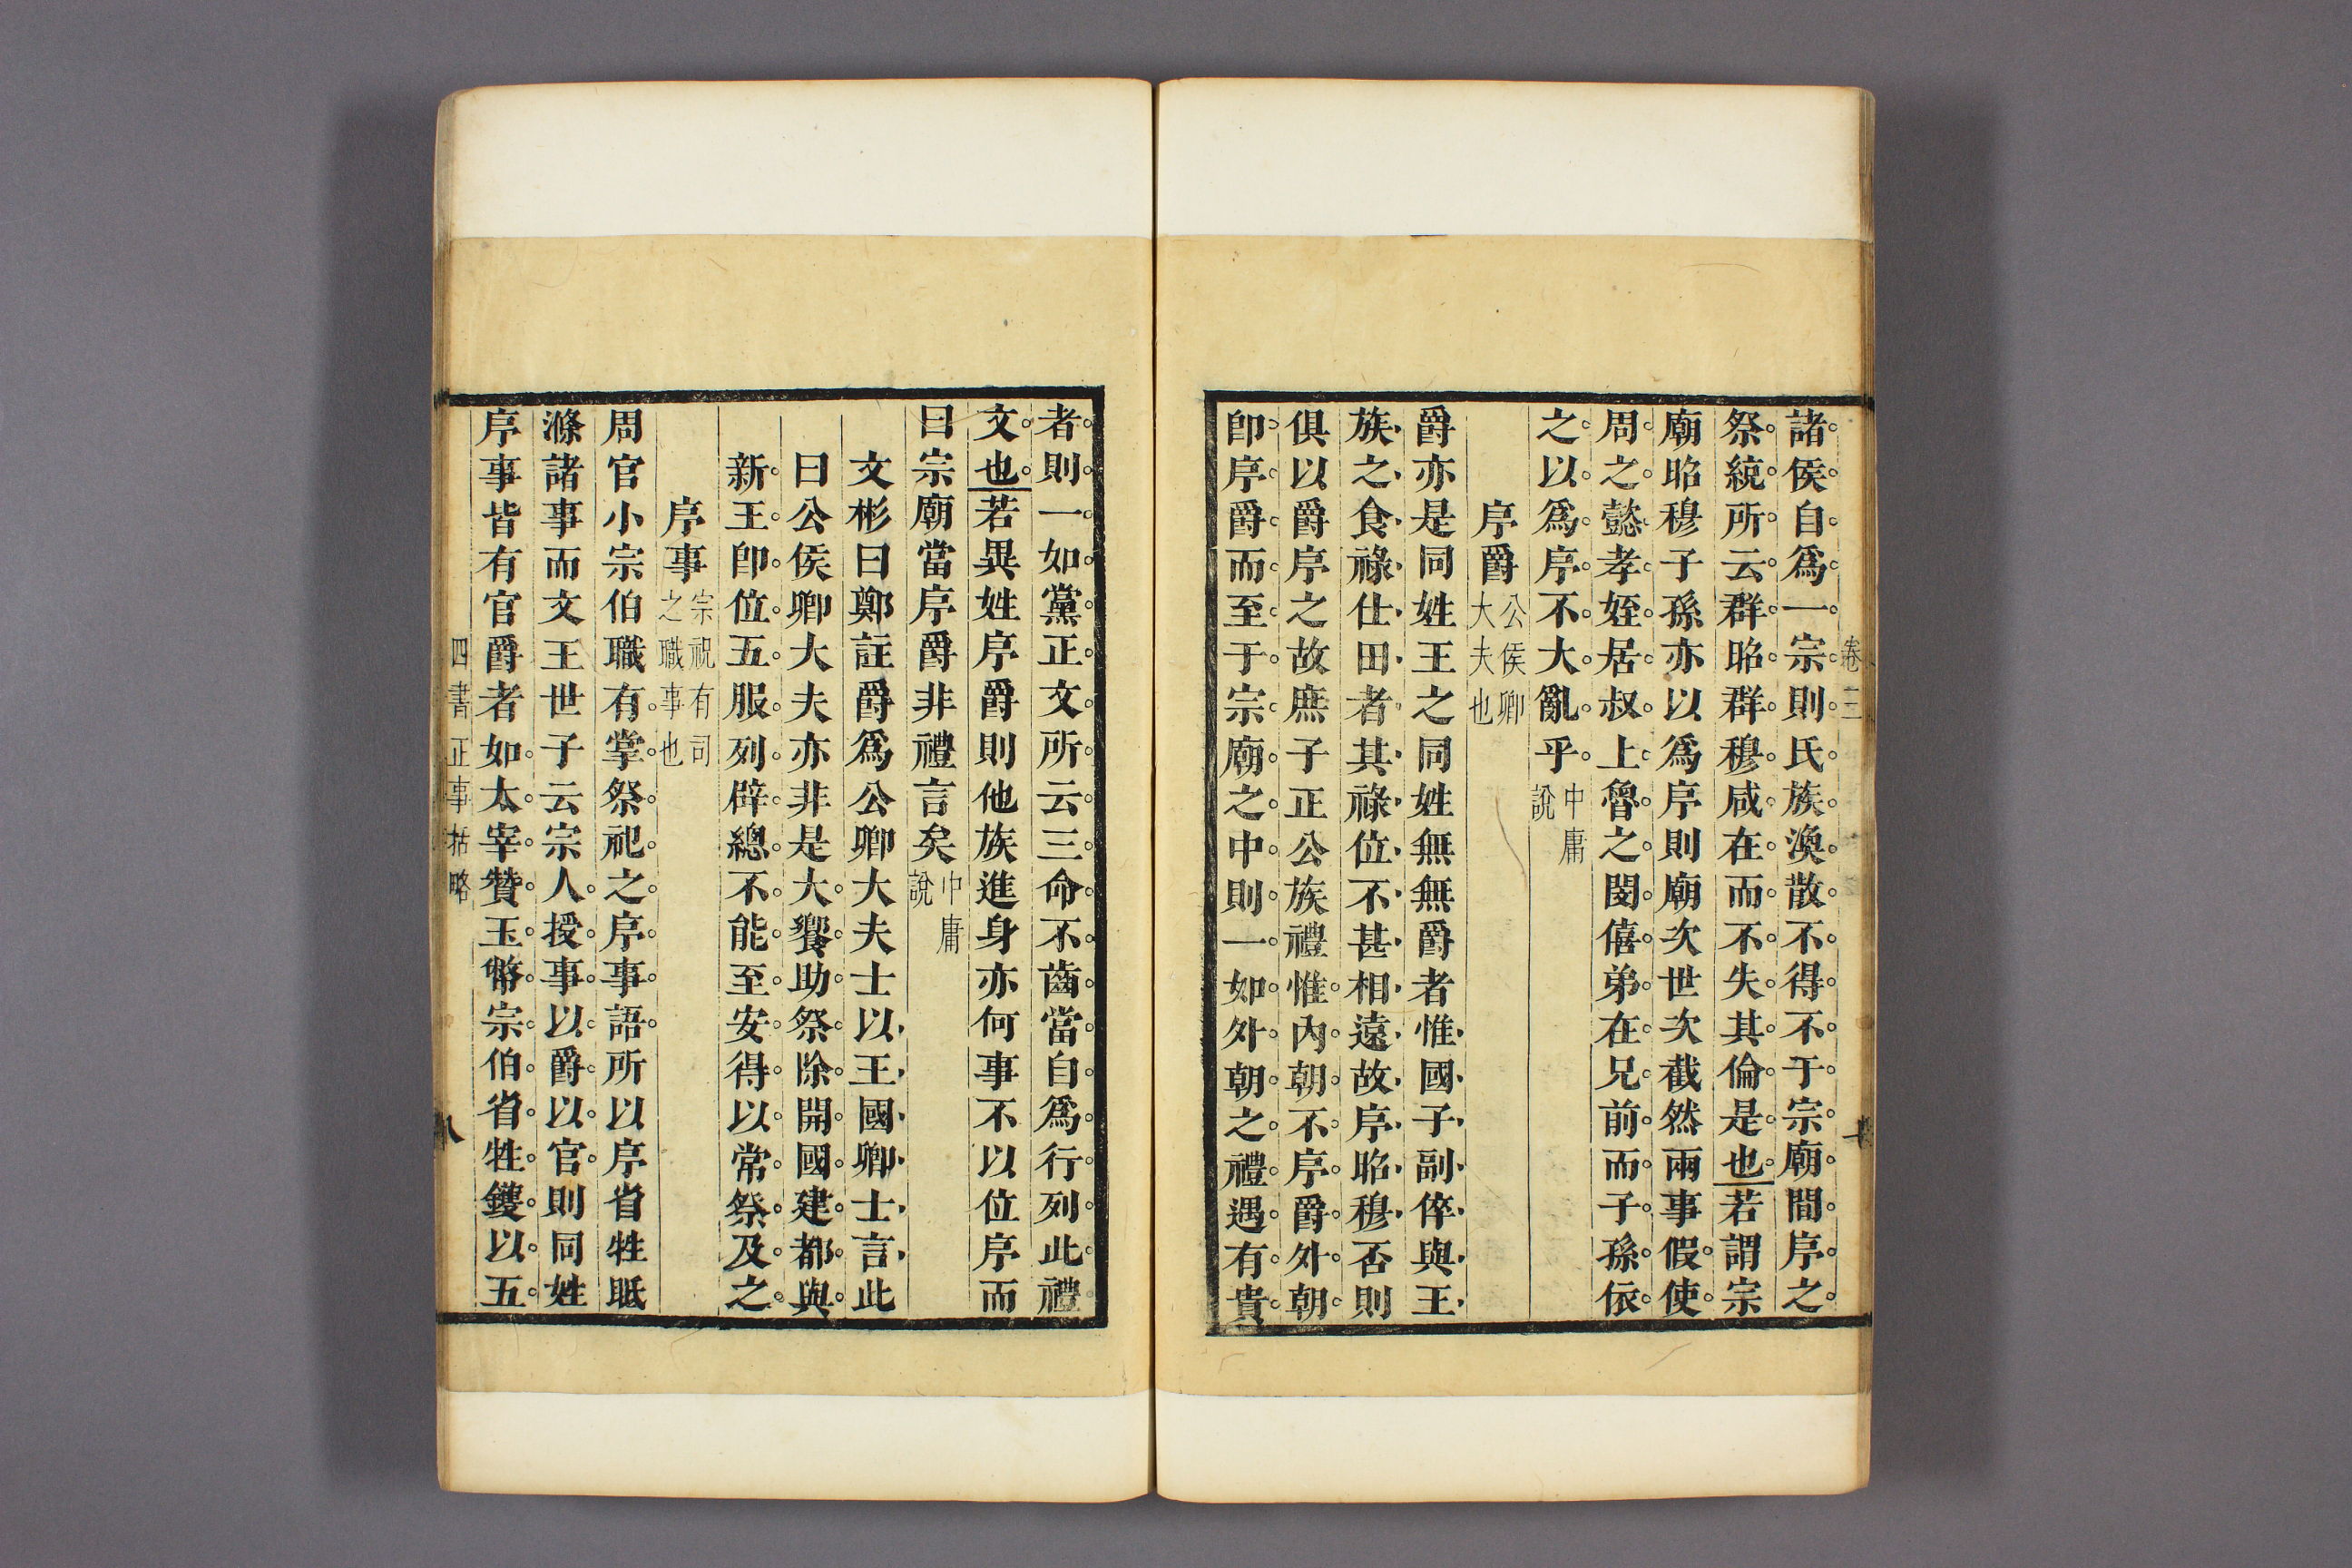 卷三
諸侯自爲一宗則氏族渙散不得不于宗廟間序之
祭統所云群昭群穆咸在而不失其倫是也若謂宗
廟昭穆子孫亦以爲序則廟次世次截然兩事假使
周之懿孝姪居叔上魯之閔僖弟在兄前而子孫依
之以爲序不大亂乎中庸說
序爵公侯卿大夫也
爵亦是同姓王之同姓無無爵者惟國子副倅與王
族之食祿仕田者其祿位不甚相遠故序昭穆否則
俱以爵序之故庶子正公族禮惟內朝不序爵外朝
卽序爵而至于宗廟之中則一如外朝之禮遇有貴
者則一如黨正文所云三命不齒當自爲行列此禮
文也若異姓序爵則他族進身亦何事不以位序而
曰宗廟當序爵非禮言矣中庸說
文彬曰鄭註爵爲公卿大夫士以王國卿士言此
曰公侯卿大夫亦非是大饗助祭除開國建都與
新王卽位五服列辟總不能至安得以常祭及之
序事宗祝有司之職事也
周官小宗伯職有掌祭祀之序事語所以序省牲眡
滌諸事而文王世子云宗人授事以爵以官則同姓
序事皆有官爵者如太宰贊玉幣宗伯省牲鑊以五
四書正事括略
八